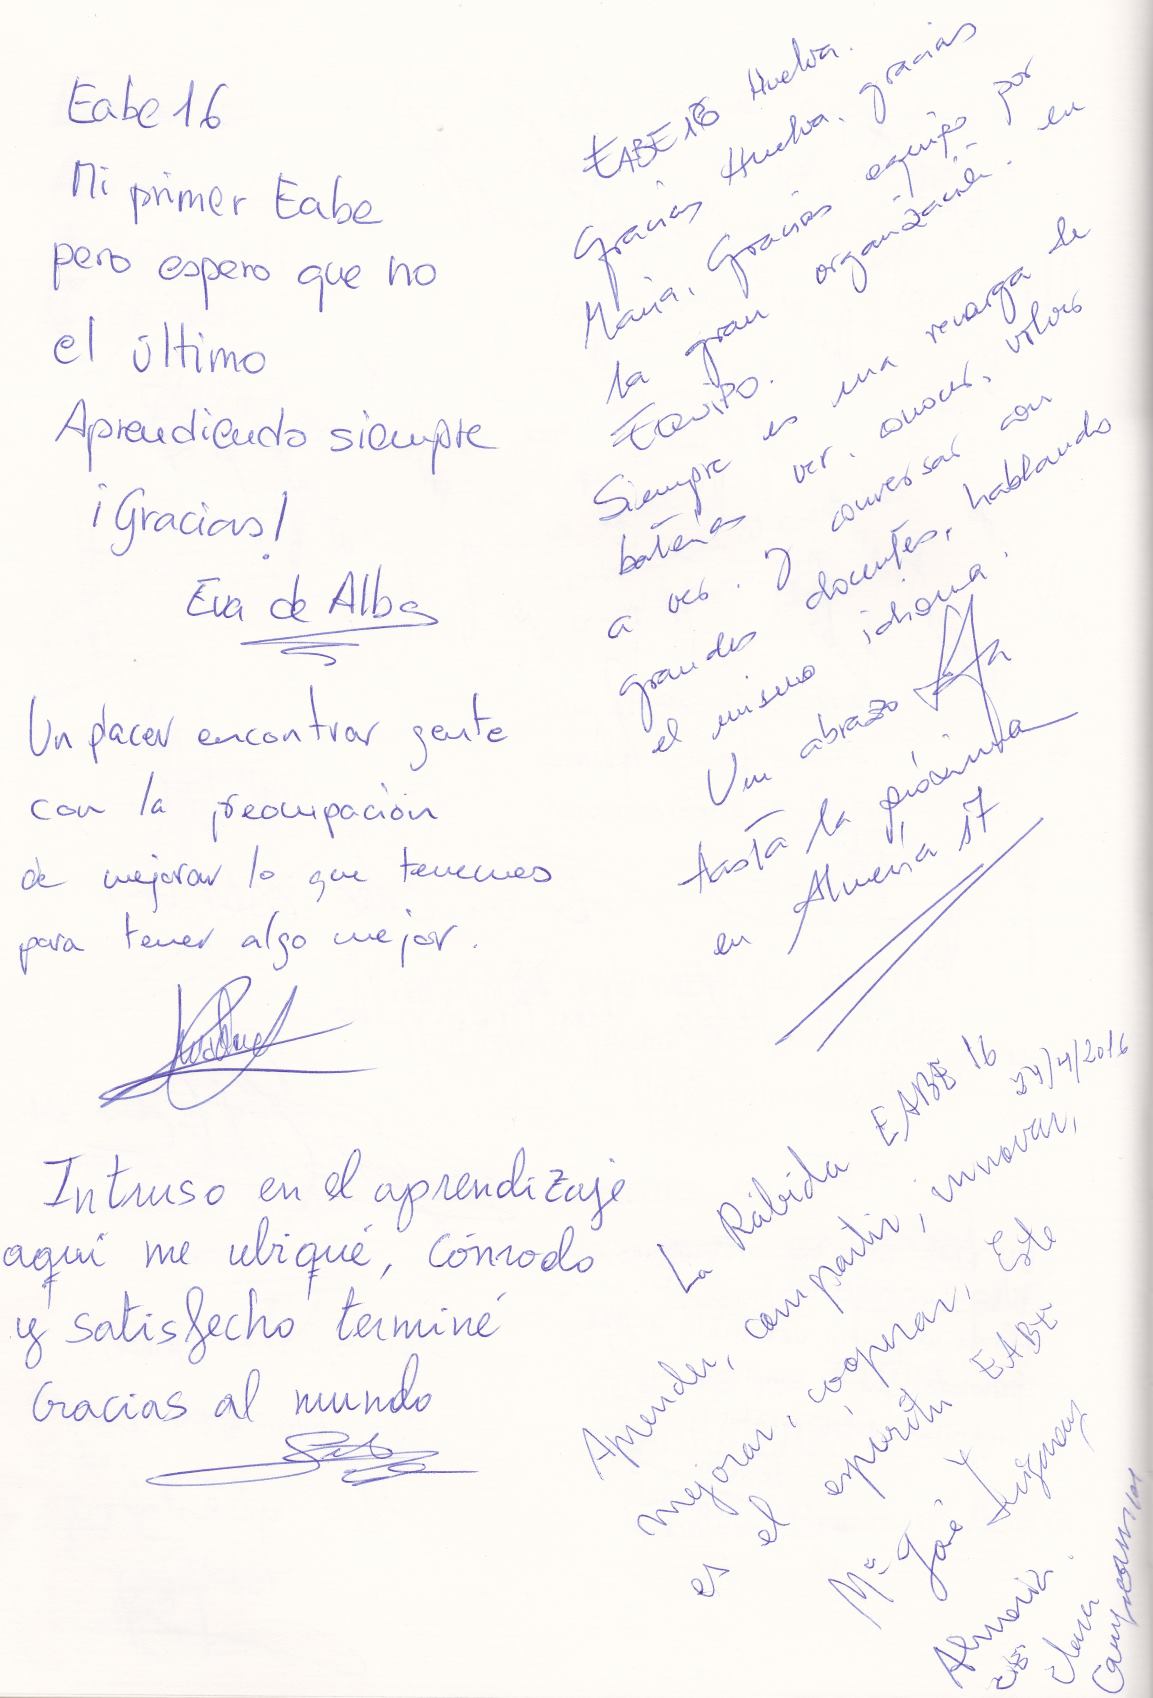 Eabe 16
Mi primer Eabe
pero espero que no
el último
Aprendiendo siempre
¡Gracias!
Eva de Alba
Un placer encontrar gente
con la preocupación
de mejorar lo que tenemos
para tener algo mejor.
Intruso en el aprendizaje
aquí me ubiqué, cómodo
y satisfecho terminé
Gracias al mundo
EABE16 Huelva.
Gracias Huelva. gracias
María. Gracias equipo por
la gran organización. en
Equipo.
Siempre es una recarga de
baterías ver, conocer, volver
a ver. y conversar con
grandes docentes, hablando
el mismo idioma.
Un abrazo
Hasta la próxima
en Almería 17
La Rábida EABE 16
24/4/2016
Aprender, compartir, innovar,
mejorar, cooperar, Este
es el espíritu EABE
Mª José
Almería.
Clara
Campoamor